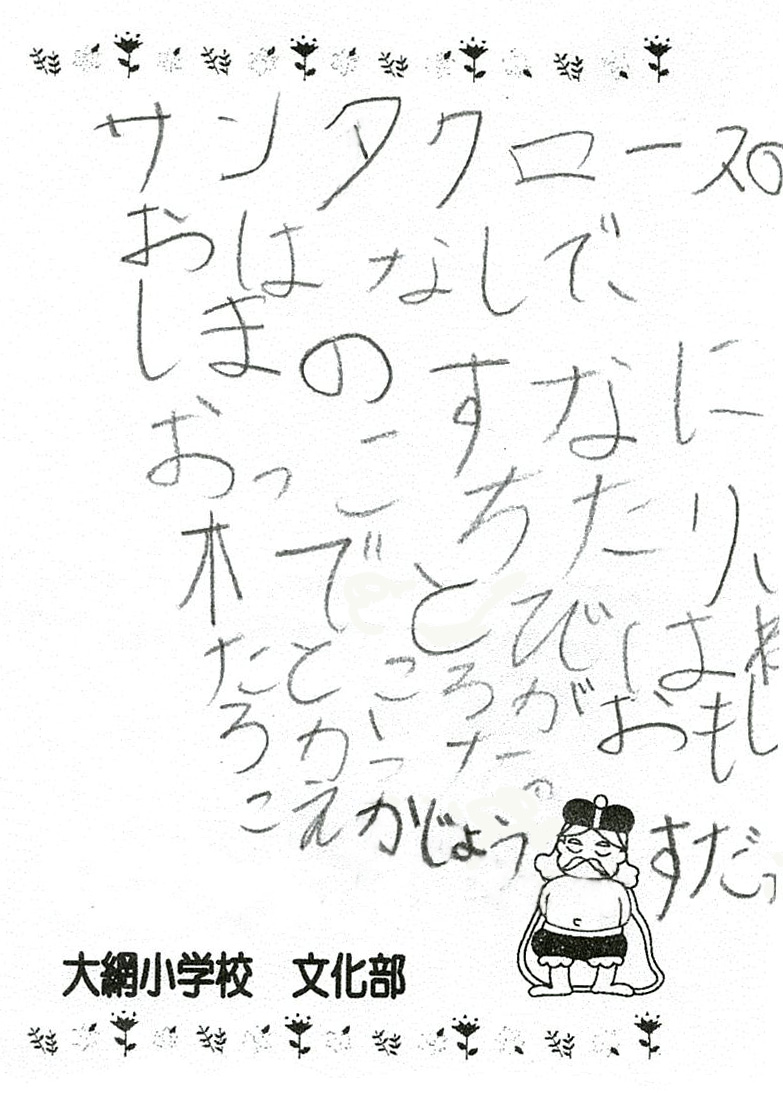 サンタクロースの
おはなしで、
しまのすなに
おっこちたり、
木でとびはね
たところがおもし
ろかった。
こえがじょうずだっ
大網小学校　文化部